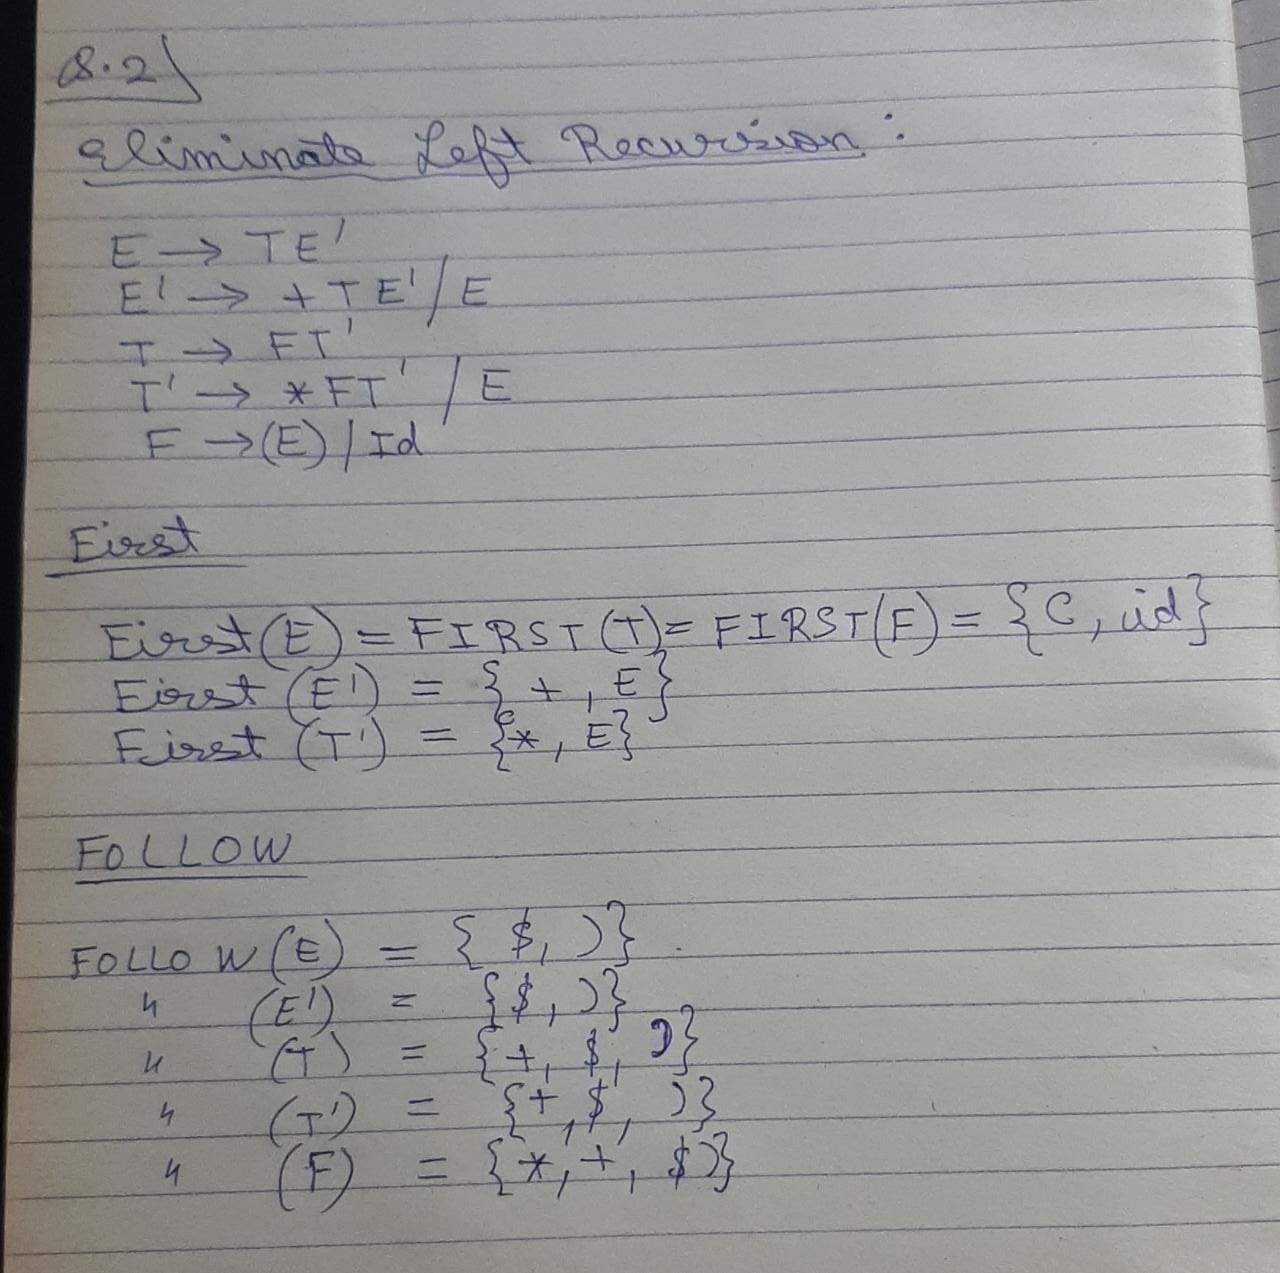 Q.2)
Eliminate Left Recursion :
E → TE'
E' → +TE'/E
T → FT'
T' → *FT'/E
F → (E) / Id
First
First(E) = FIRST(T) = FIRST(F) = {C, id}
First (E') = {+, E}
First (T') = {*, E}
FOLLOW
FOLLOW (E) = {$, )}.
" (E') = {$, )}
" (T) = {+, $, )}
" (T') = {+, $, )}
" (F) = {*, +, $)}